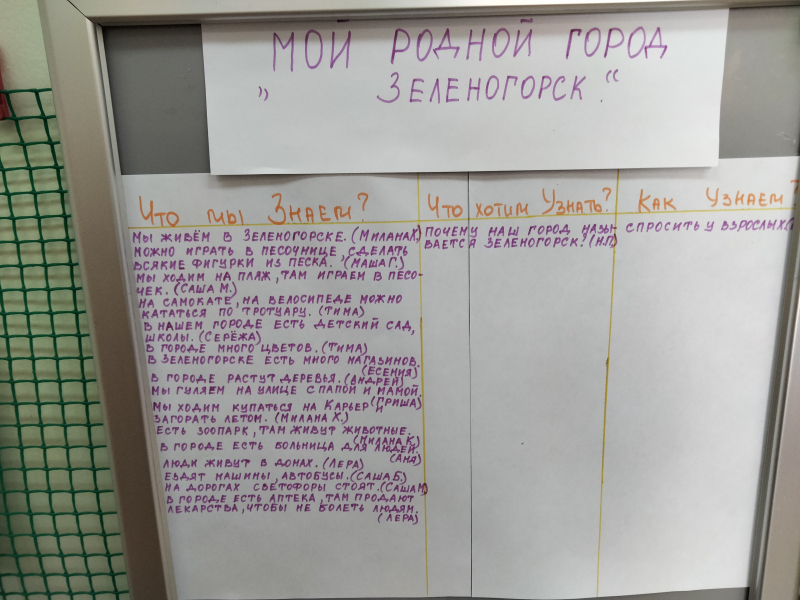 МОЙ РОДНОЙ ГОРОД
„ ЗЕЛЕНОГОРСК."
Что мы Знаем?
МЫ ЖИВЁМ В ЗЕЛЕНОГОРСКЕ. (МИЛАНА Х)
МОЖНО ИГРАТЬ В ПЕСОЧНИЦЕ СДЕЛАТЬ
ВСЯКИЕ ФИГУРКИ ИЗ ПЕСКА. (МАША Г.)
МЫ ХОДИМ НА ПЛЯЖ, ТАМ ИГРАЕМ В ПЕСО-
ЧЕК. (САША М.)
НА САМОКАТЕ, НА ВЕЛОСИПЕДЕ МОЖНО
КАТАТЬСЯ ПО ТРОТУАРУ. (ТИМА)
В НАШЕМ ГОРОДЕ ЕСТЬ ДЕТСКИЙ САД,
ШКОЛЫ. (СЕРЁЖА)
В ГОРОДЕ МНОГО ЦВЕТОВ. (ТИМА)
В ЗЕЛЕНОГОРСКЕ ЕСТЬ МНОГО МАГАЗИНОВ.
(ЕСЕНИЯ)
В ГОРОДЕ РАСТУТ ДЕРЕВЬЯ. (АНДРЕЙ)
МЫ ГУЛЯЕМ НА УЛИЦЕ С ПАПОЙ И МАМОЙ.
(ГРИША)
МЫ ХОДИМ КУПАТЬСЯ НА КАРЬЕР И
ЗАГОРАТЬ ЛЕТОМ. (МИЛАНА Х.)
ЕСТЬ ЗООПАРК, ТАМ ЖИВУТ ЖИВОТНЫЕ.
(МИЛАНА К.)
В ГОРОДЕ ЕСТЬ БОЛЬНИЦА ДЛЯ ЛЮДЕЙ.
(АНЯ)
ЛЮДИ ЖИВУТ В ДОМАХ. (ЛЕРА)
ЕЗДЯТ МАШИНЫ, АВТОБУСЫ. (САША Б.)
НА ДОРОГАХ СВЕТОФОРЫ СТОЯТ. (САША М)
В ГОРОДЕ ЕСТЬ АПТЕКА, ТАМ ПРОДАЮТ
ЛЕКАРСТВА, ЧТОБЫ НЕ БОЛЕТЬ ЛЮДЯМ.
(ЛЕРА)
Что хотим Узнать?
ПОЧЕМУ НАШ ГОРОД НАЗЫ-
ВАЕТСЯ ЗЕЛЕНОГОРСК? (Н.П)
Как Узнаем?
СПРОСИТЬ У ВЗРОСЛЫХ.